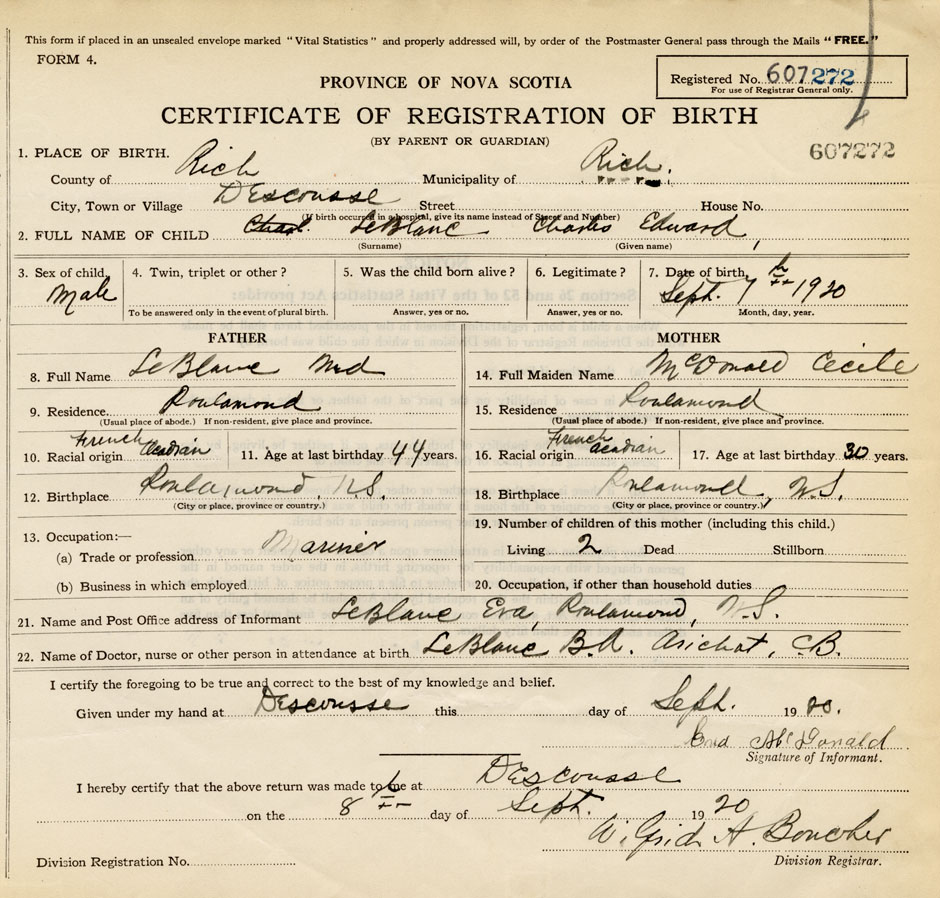 This form if placed in an unsealed envelope marked "Vital Statistics" and properly addressed will, by order of the Postmaster General pass through the Mails "FREE."
FORM 4.
Registered No. 607272
For use of Registrar General only.
PROVINCE OF NOVA SCOTIA
CERTIFICATE OF REGISTRATION OF BIRTH
(BY PARENT OR GUARDIAN)
607272
1. PLACE OF BIRTH.
County of Rich Municipality of Rich.
City, Town or Village DEscousse Street House No.
(If birth occurred in a hospital, give its name instead of Street and Number)
2. FULL NAME OF CHILD LeBlanc Charles Edward,
(Surname) (Given name)
3. Sex of child. 4. Twin, triplet or other? 5. Was the child born alive? 6. Legitimate? 7. Date of birth.
Male Sept. 7th 1920
To be answered only in the event of plural birth. Answer, yes or no. Answer, yes or no. Month, day, year.
FATHER MOTHER
8. Full Name LeBlanc 14. Full Maiden Name McDonald Cecile
9. Residence Poulamond 15. Residence Poulamond
(Usual place of abode.) If non-resident, give place and province. (Usual place of abode.) If non-resident, give place and province.
10. Racial origin French Acadian 11. Age at last birthday 44 years. 16. Racial origin French Acadian 17. Age at last birthday 30 years.
12. Birthplace Poulamond, N.S. 18. Birthplace Poulamond, N.S.
(City or place, province or country.) (City or place, province or country.)
13. Occupation:— 19. Number of children of this mother (including this child.)
(a) Trade or profession Mariner Living 2 Dead Stillborn
(b) Business in which employed 20. Occupation, if other than household duties
21. Name and Post Office address of Informant LeBlanc Eva, Poulamond, N.S.
22. Name of Doctor, nurse or other person in attendance at birth LeBlanc B.A. Arichat, C.B.
I certify the foregoing to be true and correct to the best of my knowledge and belief.
Given under my hand at Descousse this day of Sept. 1920.
McDonald
Signature of Informant.
I hereby certify that the above return was made to me at DEscousse
on the 8th day of Sept. 1920
A. Boucher
Division Registration No. Division Registrar.